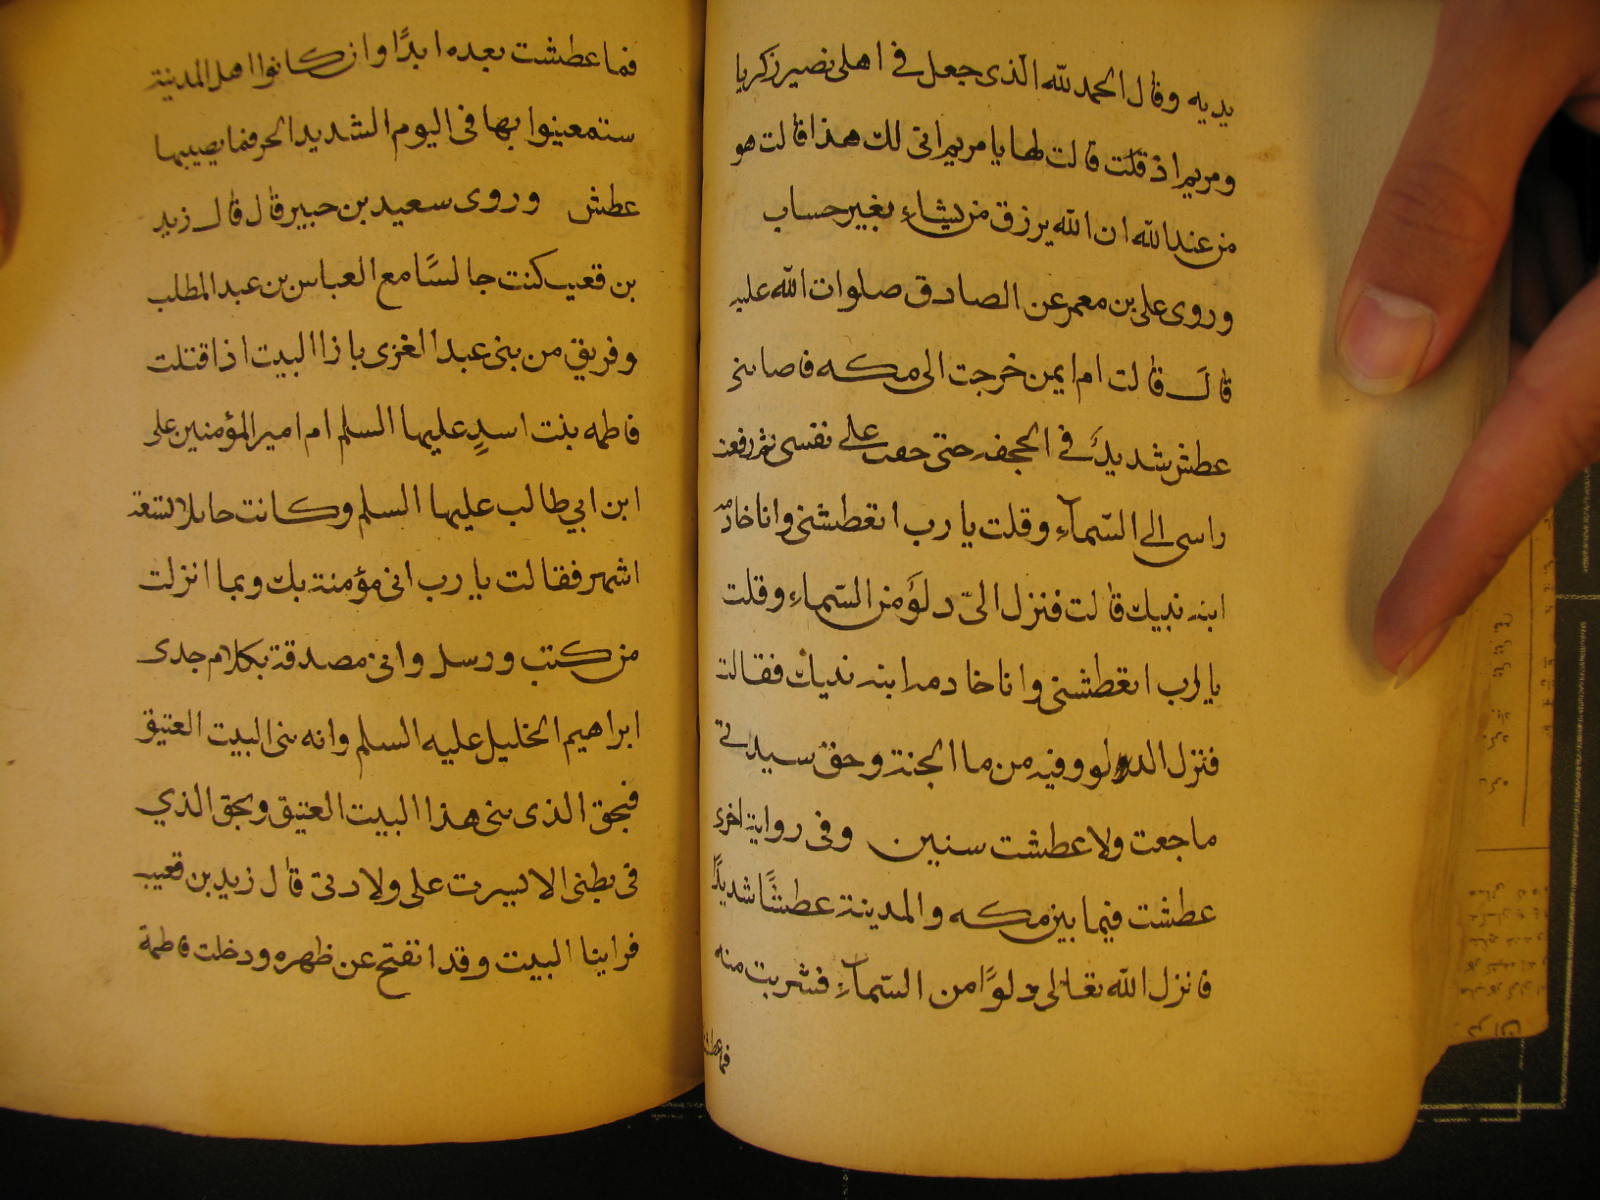 يديه وقال الحمد لله الذى جعل فى اهلى نصير زكريا
ومريم اذ قلت قالت لها يا مريم انى لك هذا قالت هو
من عند الله ان الله يرزق من يشاء بغير حساب
وروى على بن معمر عن الصادق صلوات الله عليه
قال قالت ام ايمن خرجت الى مكه فاصابنى
عطش شديد فى الحجفه حتى خفت على نفسى ثم رفعت
راسى الى السّمآء وقلت يا رب اتعطشنى وانا خادمه
ابنه نبيك قالت فنزل الىّ دلو من السّماء وقلت
يا رب اتعطشنى وانا خادمه ابنه نبيك فقالت
فنزل الدلو وفيه من ما الجنة وحق سيدتى
ما جعت ولا عطشت سنين وفى رواية اخرى
عطشت فيما بين مكه والمدينة عطشًا شديدًا
فانزل الله تعالى دلوًا من السّمآء فشربت منه
فما عطشت
فما عطشت بعده ابدًا وان كانوا اهل المدينة
ستمعينوا بها فى اليوم الشديد الحر فما يصيبها
عطش وروى سعيد بن جبير قال قال زيد
بن قعيب كنت جالسًا مع العباس بن عبد المطلب
وفريق من بنى عبد الغزى بازا البيت اذ اقتلت
فاطمه بنت اسدٍ عليها السلم ام امير المؤمنين على
ابن ابي طالب عليها السلم وكانت حاملا لتسعة
اشهر فقالت يا رب انى مؤمنة بك وبما انزلت
من كتب ورسل وانى مصدقة بكلام جدى
ابراهيم الخليل عليه السلم وانه بنى البيت العتيق
فبحق الذى بنى هذا البيت العتيق وبحق الذي
فى بطنى الا يسرت على ولادتى قال زيد بن قعيب
فراينا البيت وقد انفتح عن ظهره ودخلت فاطمة